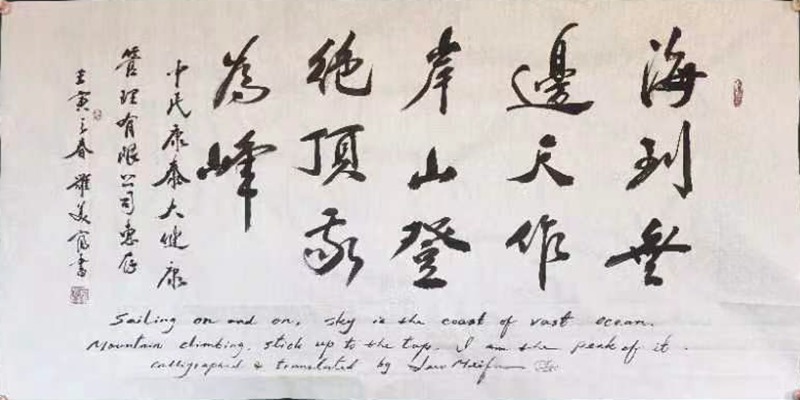 海到無
邊天作
岸山登
絶頂我
為峰
中民康泰大健康
管理有限公司惠存
壬寅之春 羅美富書
Sailing on and on, sky is the coast of vast ocean.
Mountain climbing, stick up to the top. I am the peak of it.
Calligraphed & translated by Law Meifu